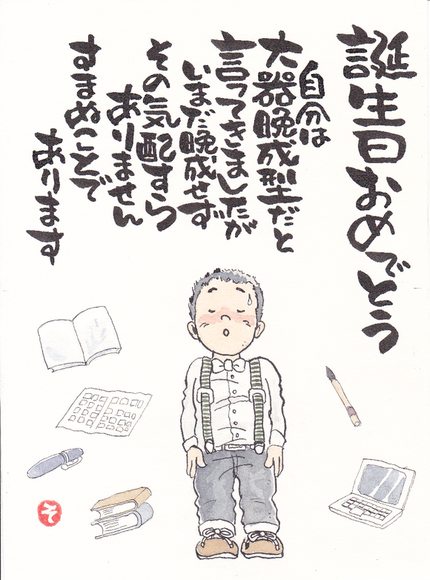 誕生日おめでとう
自分は
大器晩成型だと
言ってきましたが
いまだ晩成せず
その気配すら
ありません
すまぬことで
あります
そ